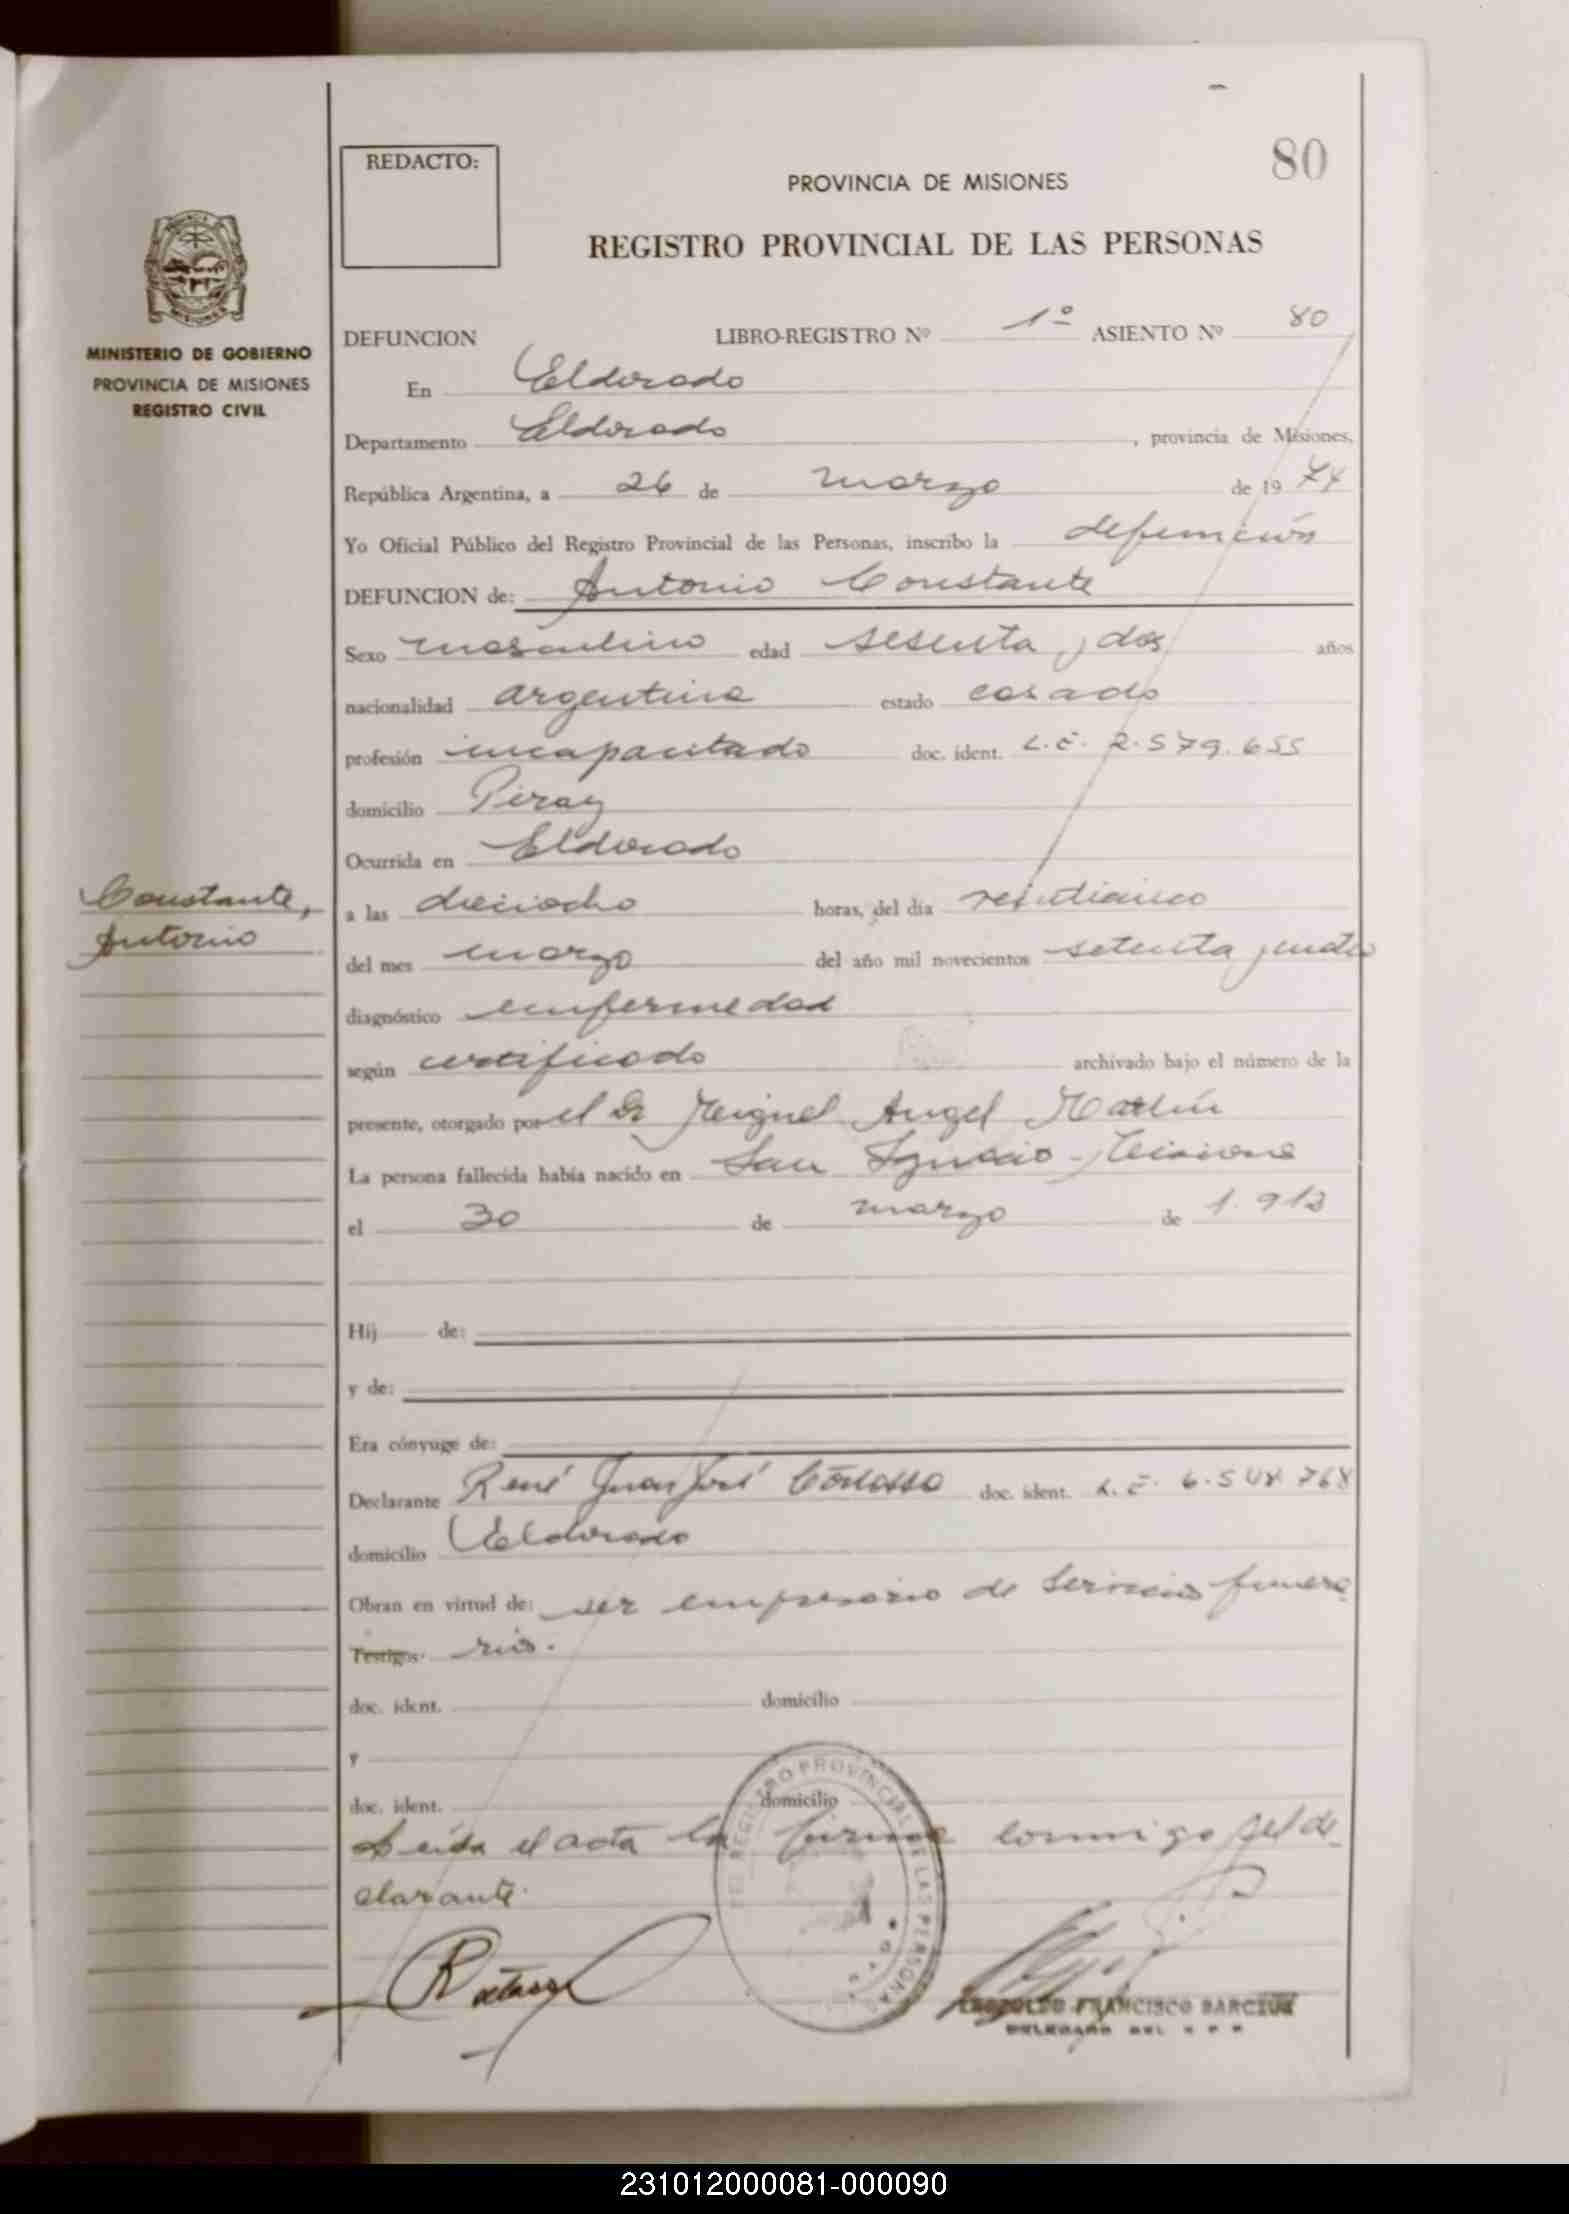 80
REDACTO:
PROVINCIA DE MISIONES
REGISTRO PROVINCIAL DE LAS PERSONAS
MINISTERIO DE GOBIERNO
PROVINCIA DE MISIONES
REGISTRO CIVIL
DEFUNCION LIBRO-REGISTRO Nº 1º ASIENTO Nº 80
En Eldorado
Departamento Eldorado, provincia de Misiones,
República Argentina, a 26 de marzo de 1974
Yo Oficial Público del Registro Provincial de las Personas, inscribo la defunción
DEFUNCION de: Antonio Constante
Sexo masculino edad sesenta y dos años
nacionalidad argentina estado casado
profesión incapacitado doc. ident. L.E. 2.579.655
domicilio Piray
Ocurrida en Eldorado
Constante,
Antonio
a las dieciocho horas, del día veinticinco
del mes marzo del año mil novecientos setenta y cuatro
diagnóstico enfermedad
según certificado archivado bajo el número de la
presente, otorgado por el Dr Miguel Angel
La persona fallecida había nacido en San Ignacio - Misiones
el 30 de marzo de 1.913
Hij de:
y de:
Era cónyuge de:
Declarante René Juan José doc. ident. L.E. 6.548 768
domicilio Eldorado
Obran en virtud de: ser empresario de servicios funera
Testigos: rios.
doc. ident. domicilio
y
doc. ident. domicilio
Leída el acta la firma conmigo el de-
clarante.
DEL REGISTRO PROVINCIAL DE LAS PERSONAS
FRANCISCO
231012000081-000090